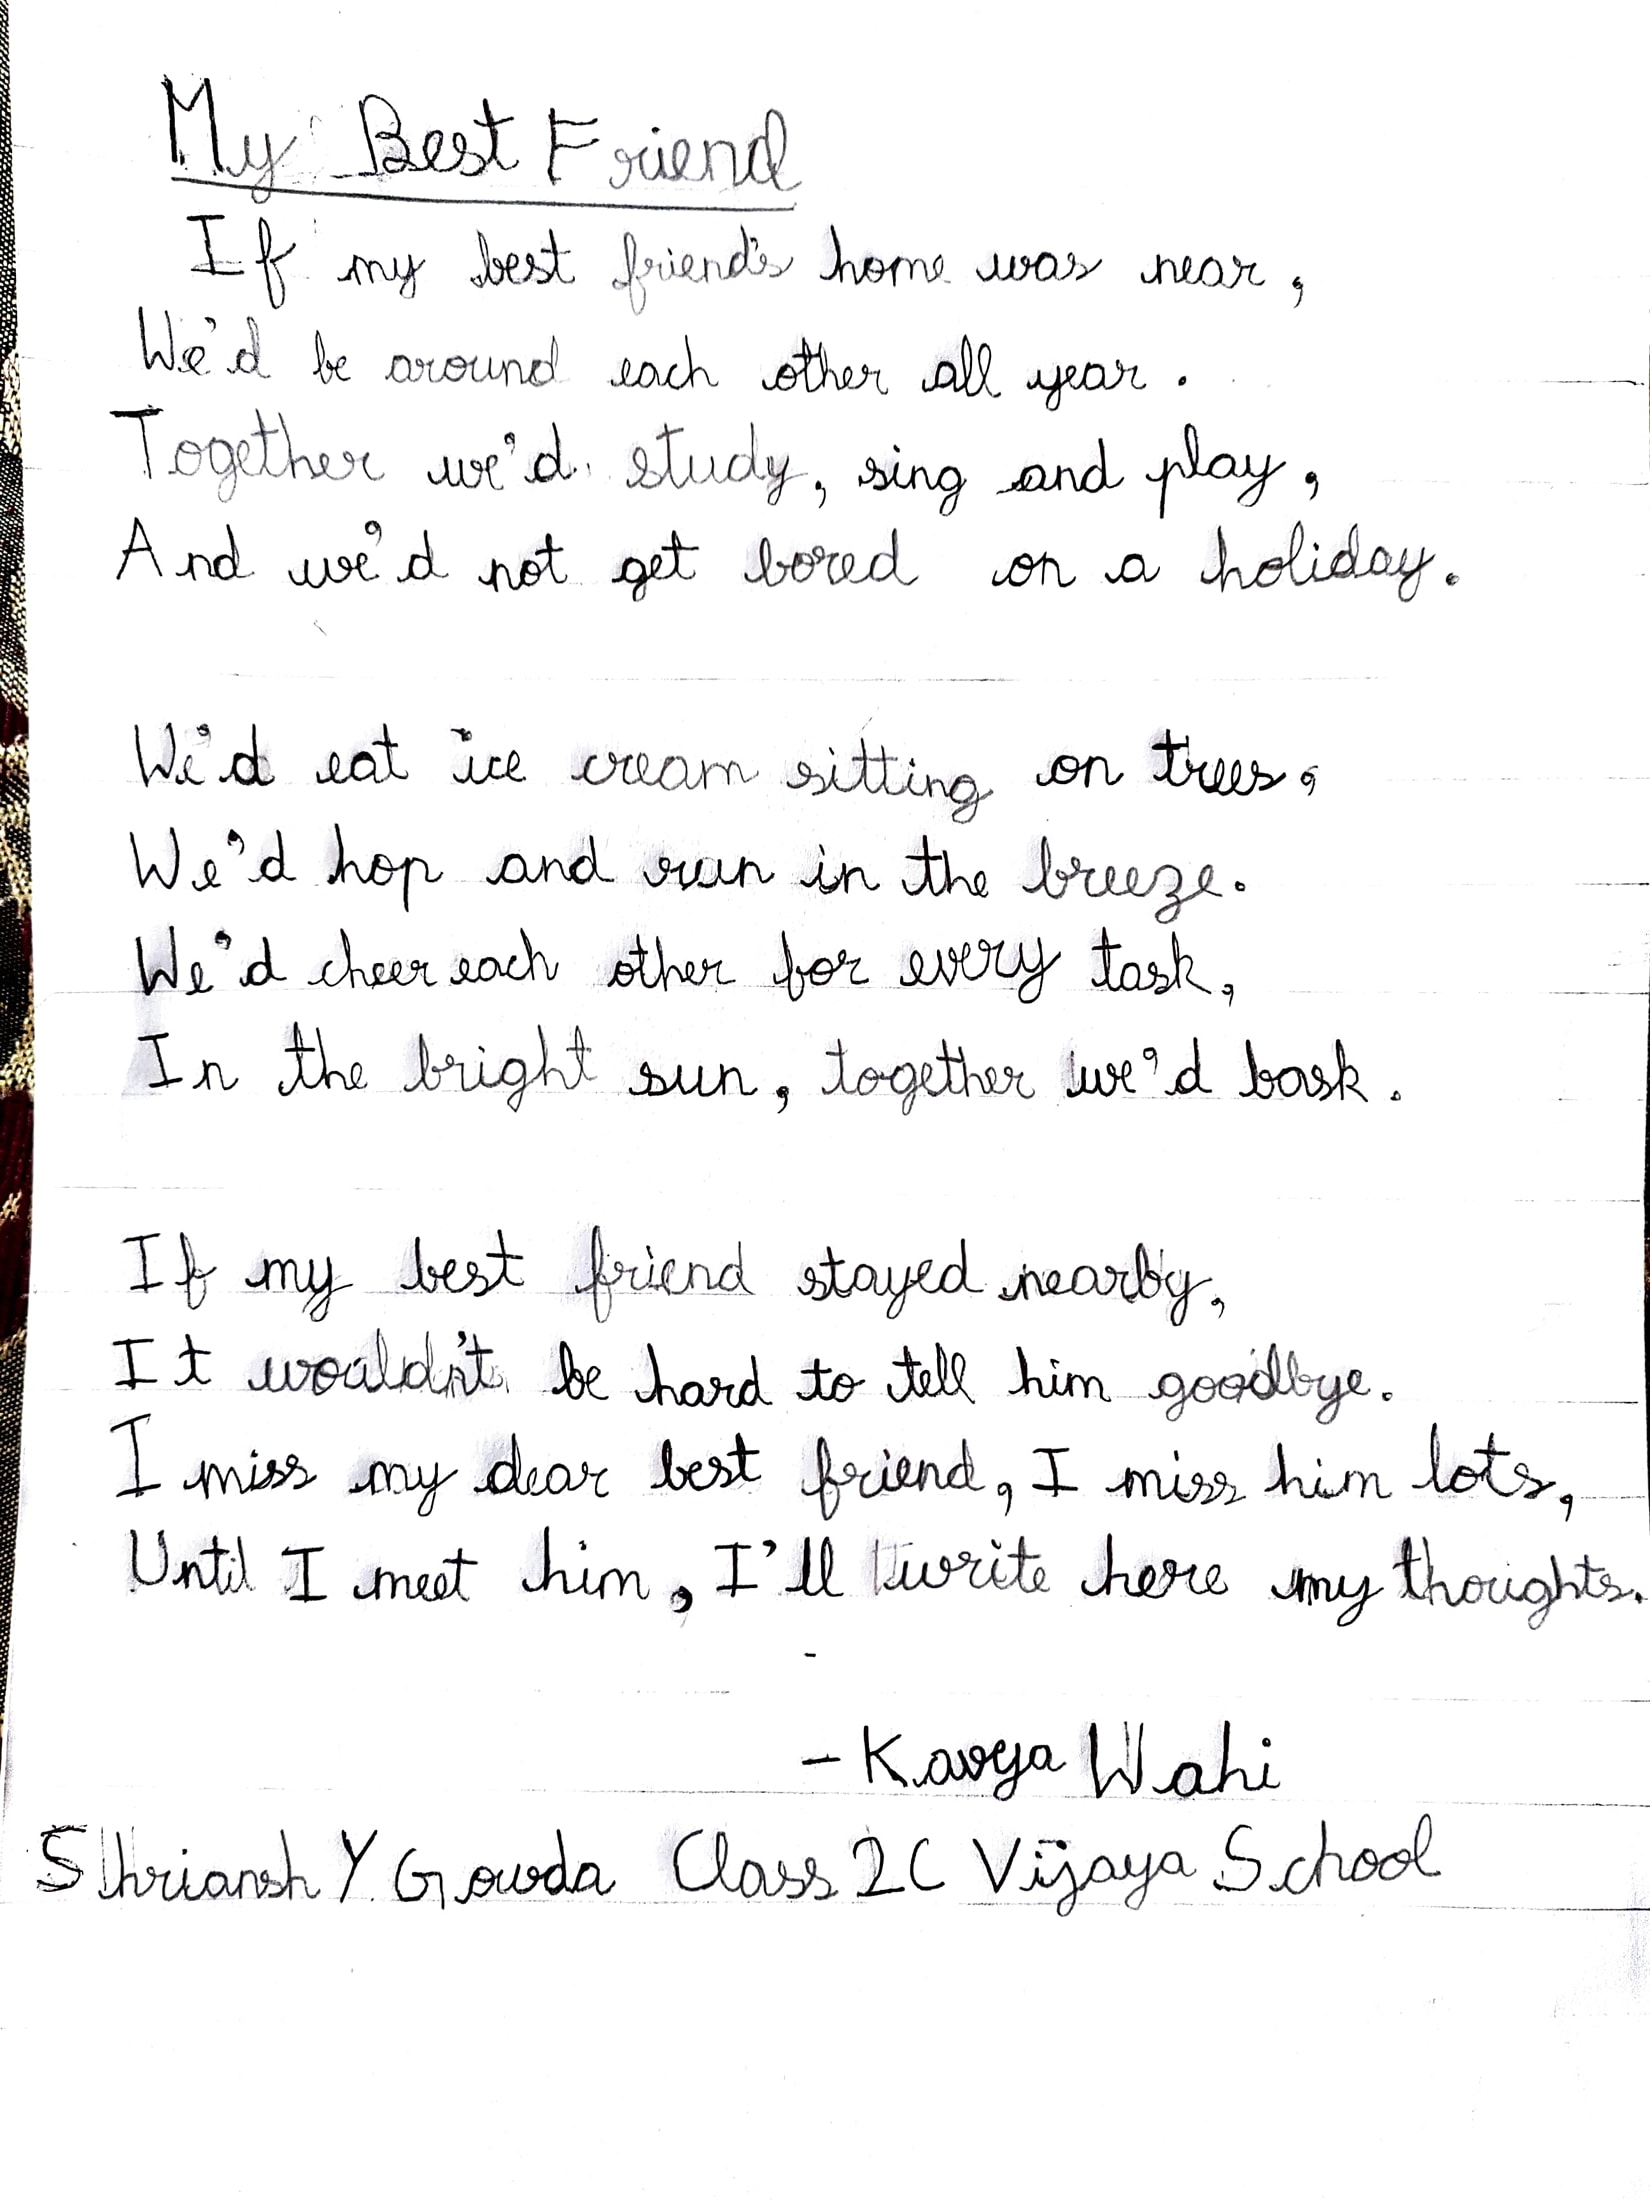 My Best Friend
If my best friend's home was near,
We'd be around each other all year.
Together we'd study, sing and play,
And we'd not get bored on a holiday.
We'd eat ice cream sitting on trees,
We'd hop and run in the breeze.
We'd cheer each other for every task,
In the bright sun, together we'd bask.
If my best friend stayed nearby,
It wouldn't be hard to tell him goodbye.
I miss my dear best friend, I miss him lots,
Until I meet him, I'll write here my thoughts.
- Kavya Wahi
Shriansh Y Gowda Class 2C Vijaya School